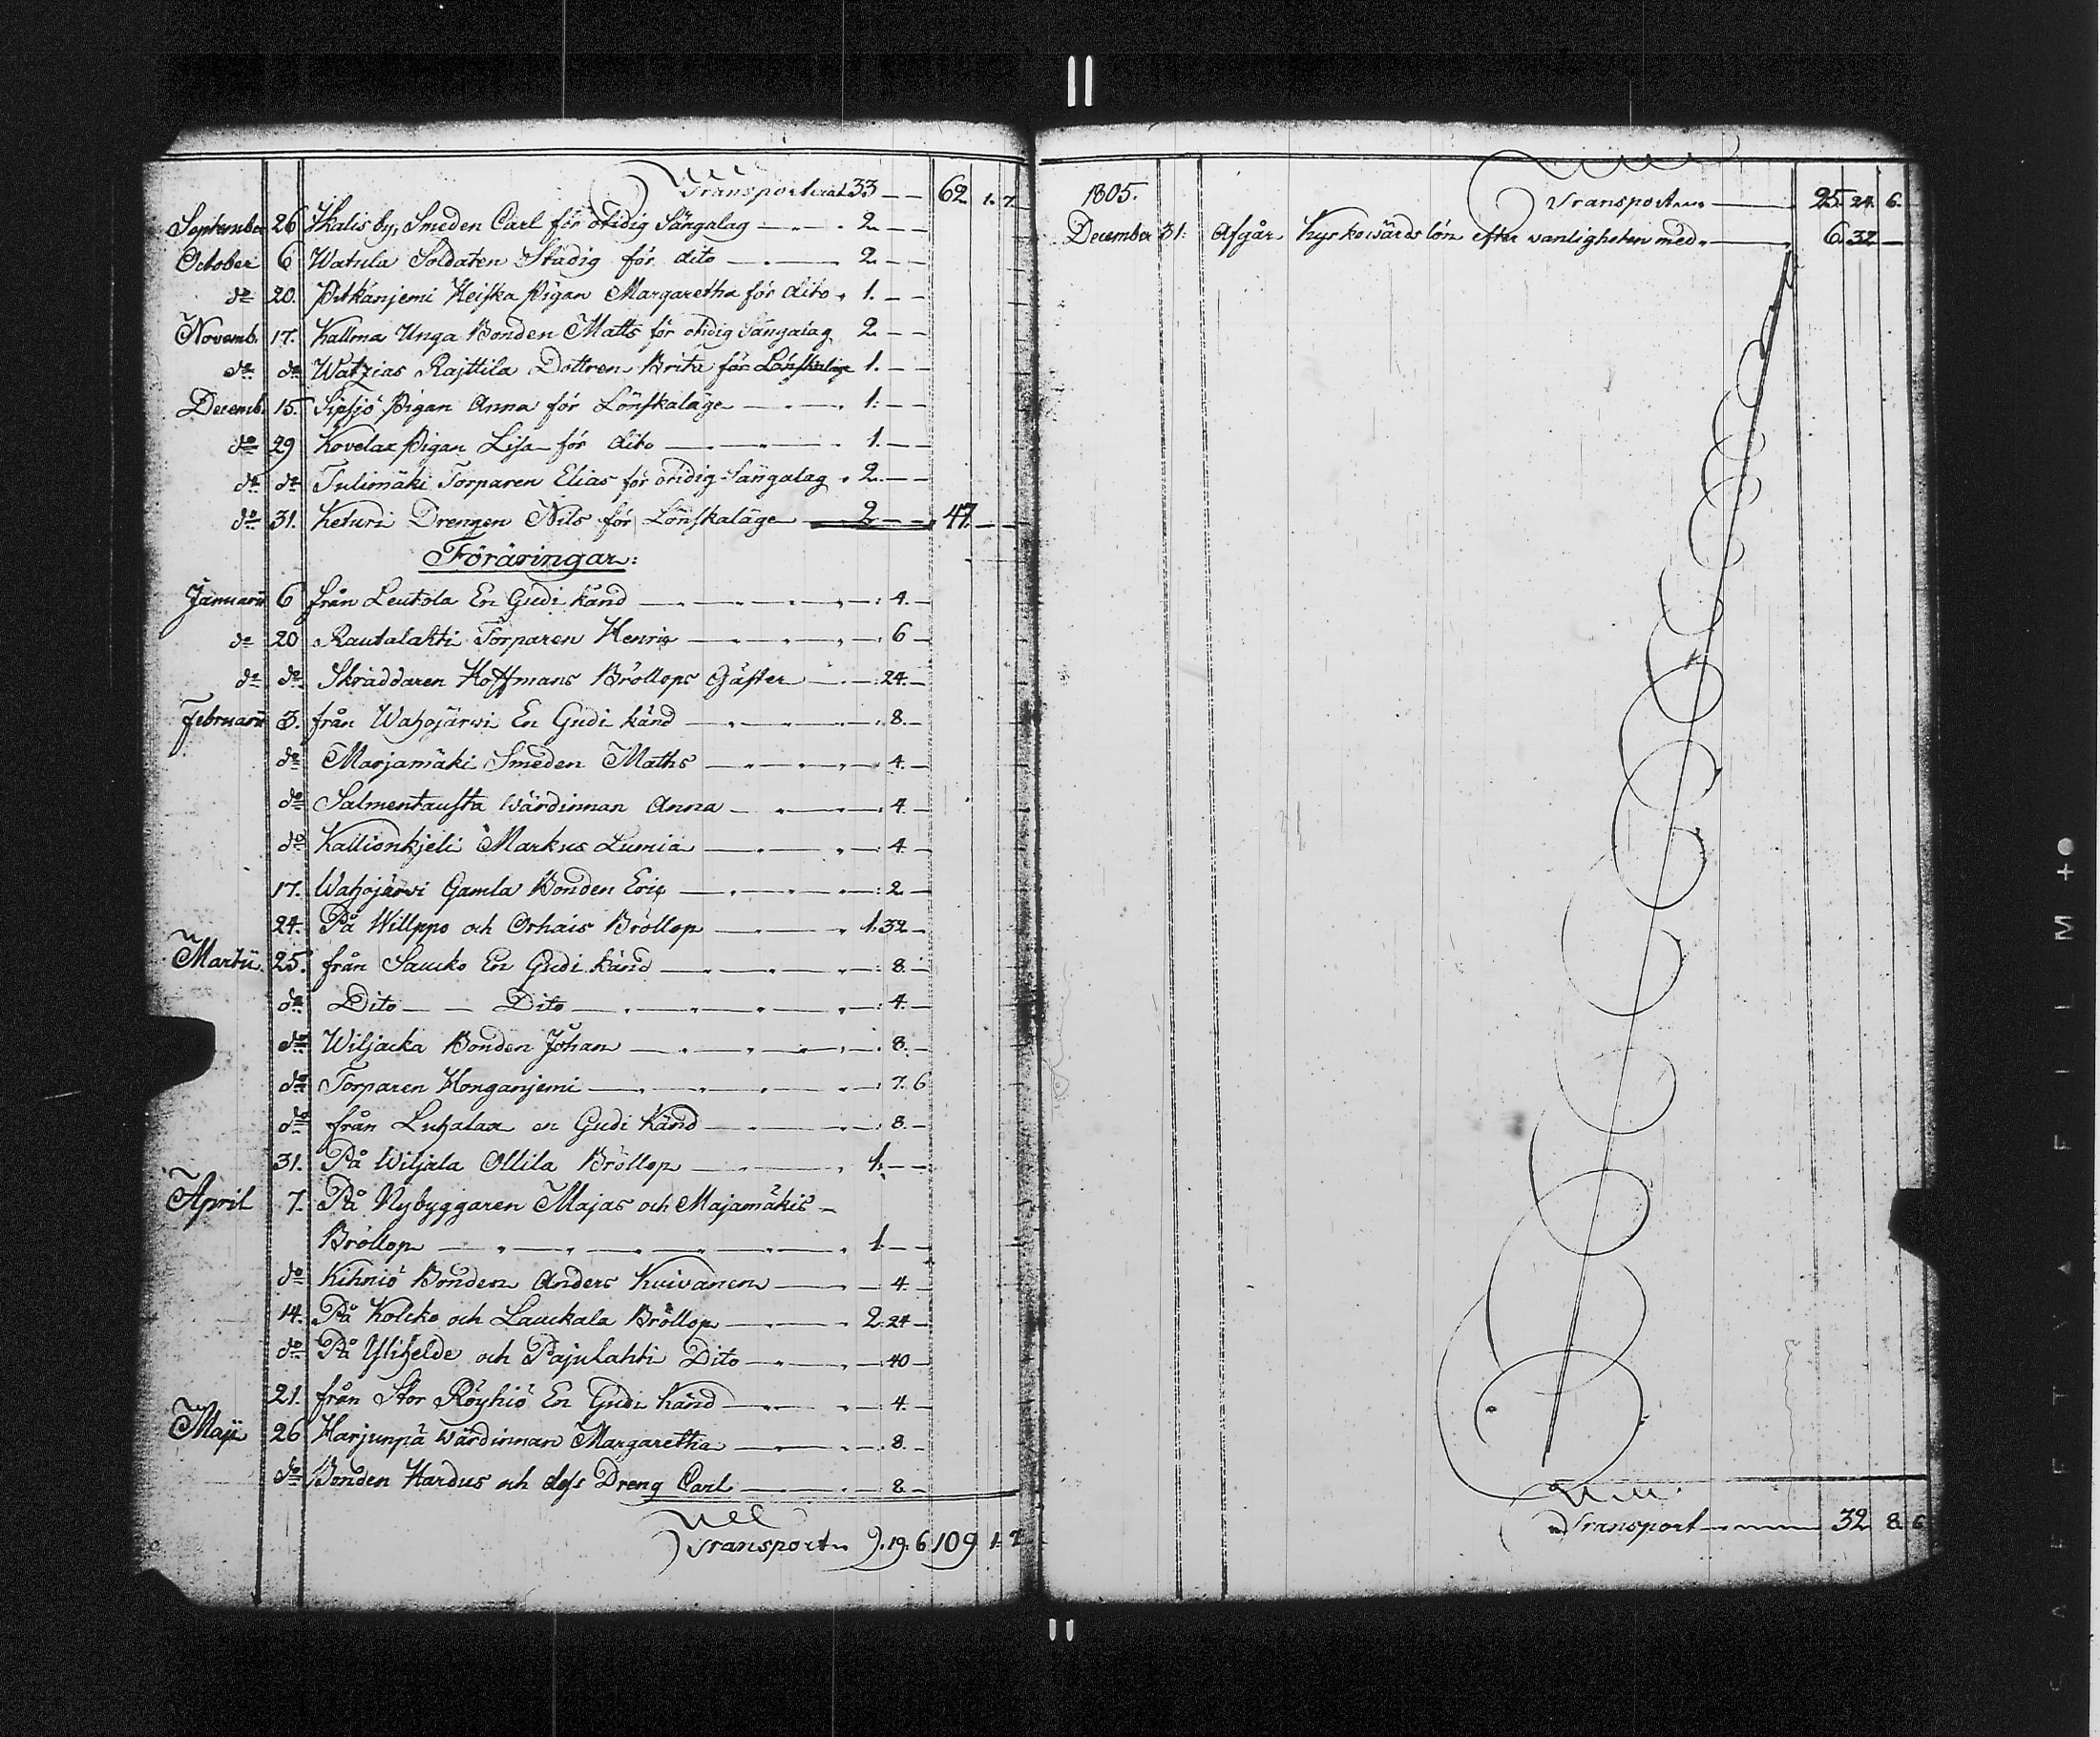 Transporterat 33 — — 62. 1. 7.
September 26 Skalis by, Smeden Carl för otidig Sängalag — 2 — —
October 6 Watula Soldaten Stadig för dito — 2 — —
do 20. Pitkänjemi Heiska Pigan Margaretha för dito 1. — —
Novemb. 17. Kallma Unga Bonden Matts för otidig Sängalag 2 — —
do do Watzias Rajttila Dottren Brita för Lönskaläge 1. — —
Decemb. 15. Sipsjö Pigan Anna för Lönskaläge — 1. — —
do 29 Kovelax Pigan Lisa för dito — 1. — —
do do Tulimäki Torparen Elias för otidig Sängalag 2. — —
do 31. Keturi Drengen Nils för Lönskaläge 2 — — 47. — —
Föräringar:
Januarii 6 från Leutola En Gudi känd — : 4. —
do 20 Rautalahti Torparen Henric — : 6 —
do do Skräddaren Hoffmans Bröllops Gäster — : 24. —
Februarii 3. från Wahojärvi En Gudi känd — : 8. —
do Marjamäki Smeden Maths — : 4. —
do Salmentausta Wärdinnan Anna — : 4. —
do Kallionkjeli Markus Lumia — : 4. —
17. Wahojärvi Gamla Bonden Eric — : 2 —
24. På Willppo och Orhais Bröllop — 1: 32 —
Martii 25. från Saucko En Gudi känd — : 8. —
do Dito — — Dito — : 4. —
do Wiljacka Bonden Johan — : 8. —
do Torparen Honganjemi — : 7. 6
do från Luhalax en Gudi Känd — : 8. —
31. På Wiljala Ollila Bröllop — 1. — —
April 7. På Nybyggaren Majas och Majamäkis
Bröllop — 1. — —
do Kihniö Bonden Anders Kuivanen — 4. —
14. På Kolcko och Lauckala Bröllop — 2: 24 —
do På Ylihelde och Pajulahti Dito — : 40 —
21. från Stor Röyhiö En Gudi Känd — 4. —
Maji 26 Harjunpä Wärdinnan Margaretha — . 8. —
do Bonden Hardus och dess Dreng Carl — 8. —
Transport 9. 19. 6 109 1. 7
1805.
Transport — 25. 24. 6.
December 31. Afgår Kyrkowärds lön efter vanligheten med — 6. 32 —
Transport — 32 8. 6